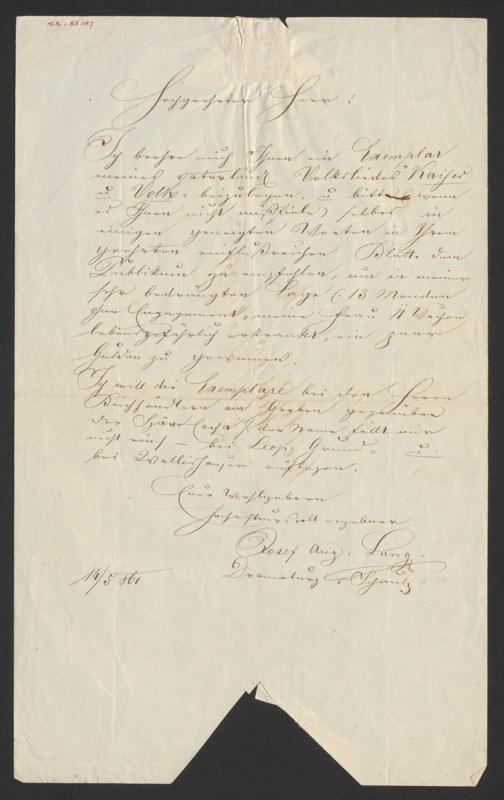 Hochgeehrter Herr!
Ich beehre mich Ihnen ein Exemplar
meines vaterländ. Volksliedes "Kaiser
u. Volk" beizulegen, u. bitte (wenn
es Ihnen nicht mißfiele) selbes in
einigen geneigten Worten in Ihrem
geehrten einflußreichen Blatte dem
Publikum zu empfehlen, um in meiner
sehr bedrängten Lage (: 13 Monden
ohne Engagement, meine Frau 11 Wochen
lebensgefährlich erkrankt, ein paar
Gulden zu gewinnen.
Ich will die Exemplare bei den Herrn
Buchhändlern am Graben gegenüber
der Spar Cassa (: der Name fällt mir
nicht ein – bei Leop. Grund – u.
bei Wallishauser auflegen.
Euer Wohlgeboren
hochachtungsvoll ergebner
Josef Aug. Lang.
Dramaturg
/5 861